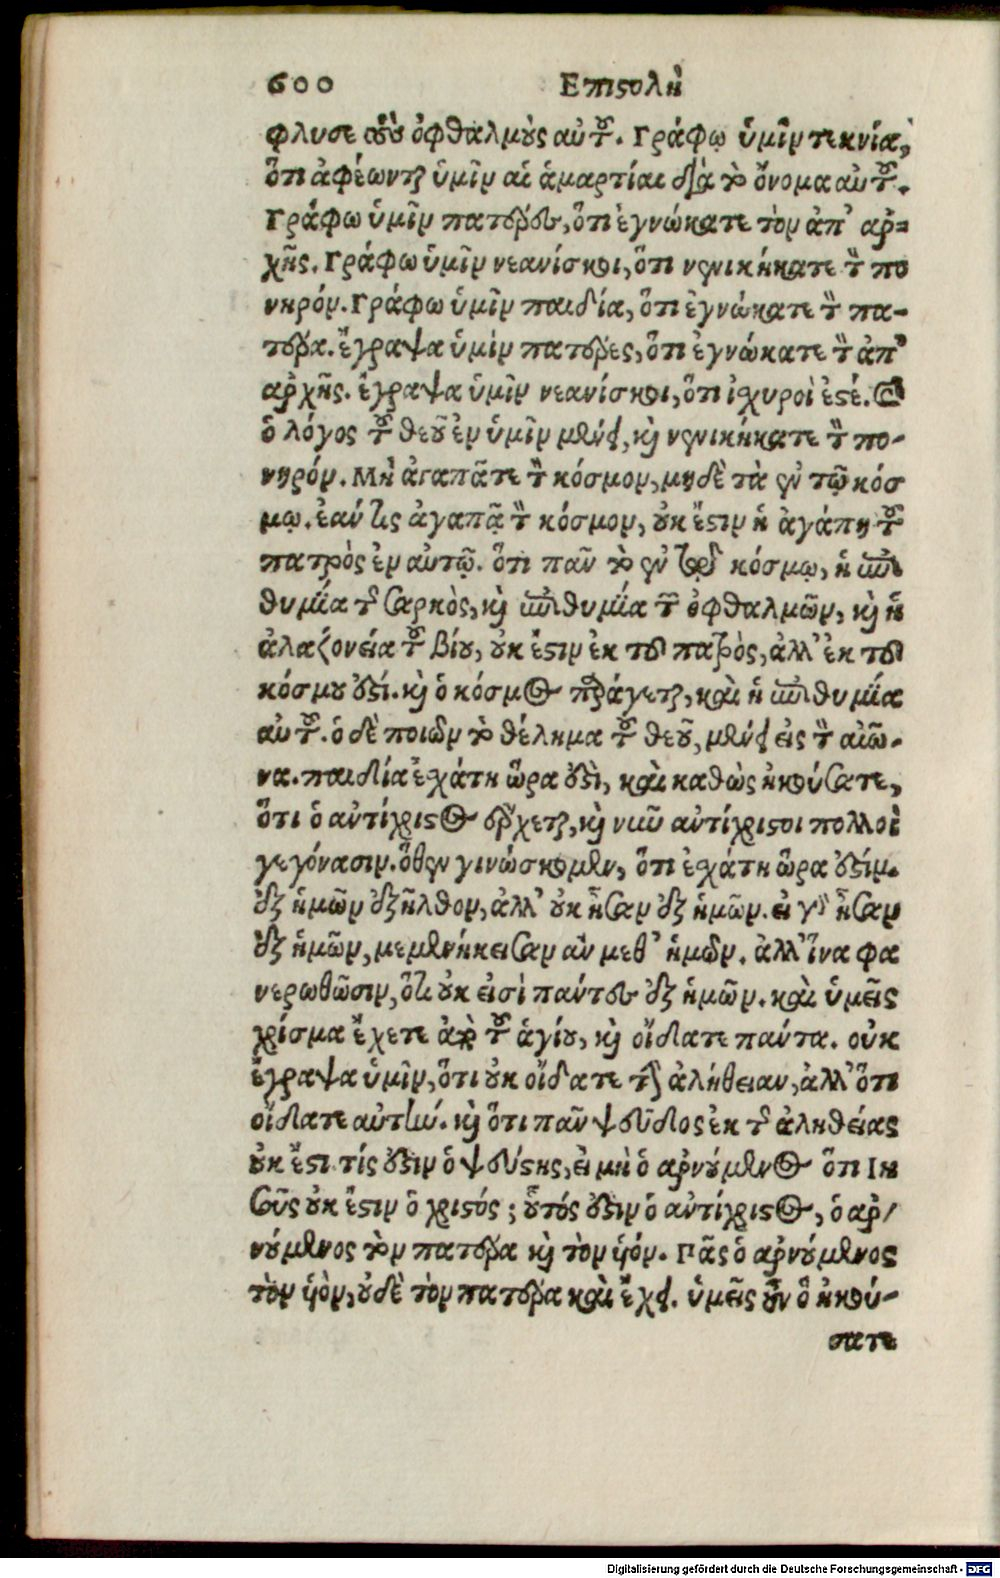 600 Επιστολὴ
φλυσε τοὺς ὀφθαλμοὺς αὐτοῦ. Γράφω ὑμῖν τεκνία,
ὅτι ἀφέωνται ὑμῖν αἱ ἁμαρτίαι διὰ τὸ ὄνομα αὐτοῦ.
Γράφω ὑμῖν πατέρες, ὅτι ἐγνώκατε τὸν ἀπ' ἀρ-
χῆς. Γράφω ὑμῖν νεανίσκοι, ὅτι νενικήκατε τὸν πο
νηρόν. Γράφω ὑμῖν παιδία, ὅτι ἐγνώκατε τὸν πα-
τέρα. ἔγραψα ὑμῖν πατέρες, ὅτι ἐγνώκατε τὸν ἀπ'
ἀρχῆς. ἔγραψα ὑμῖν νεανίσκοι, ὅτι ἰσχυροὶ ἐστέ. καὶ
ὁ λόγος τοῦ θεοῦ ἐν ὑμῖν μένει, καὶ νενικήκατε τὸν πο-
νηρόν. Μὴ ἀγαπᾶτε τὸν κόσμον, μηδὲ τὰ ἐν τῷ κόσ
μῳ. ἐάν τις ἀγαπᾷ τὸν κόσμον, οὐκ ἔστιν ἡ ἀγάπη τοῦ
πατρὸς ἐν αὐτῷ. ὅτι πᾶν τὸ ἐν τῷ κόσμῳ, ἡ ἐπι
θυμία τῆς σαρκὸς, καὶ ἐπιθυμία τῶν ὀφθαλμῶν, καὶ ἡ
ἀλαζονεία τοῦ βίου, οὐκ ἔστιν ἐκ τοῦ πατρὸς, ἀλλ' ἐκ τοῦ
κόσμου ἐστί. καὶ ὁ κόσμος παράγεται, καὶ ἡ ἐπιθυμία
αὐτοῦ. ὁ δὲ ποιῶν τὸ θέλημα τοῦ θεοῦ, μένει εἰς τὸν αἰῶ-
να. παιδία ἐσχάτη ὥρα ἐστὶ, καὶ καθὼς ἠκούσατε,
ὅτι ὁ ἀντίχριστος ἔρχεται, καὶ νῦν ἀντίχριστοι πολλοὶ
γεγόνασιν. ὅθεν γινώσκομεν, ὅτι ἐσχάτη ὥρα ἐστίν.
ἐξ ἡμῶν ἐξῆλθον, ἀλλ' οὐκ ἦσαν ἐξ ἡμῶν. εἰ γὰρ ἦσαν
ἐξ ἡμῶν, μεμενήκεισαν ἂν μεθ' ἡμῶν. ἀλλ' ἵνα φα
νερωθῶσιν, ὅτι οὐκ εἰσὶ πάντες ἐξ ἡμῶν. καὶ ὑμεῖς
χρίσμα ἔχετε ἀπὸ τοῦ ἁγίου, καὶ οἴδατε πάντα. οὐκ
ἔγραψα ὑμῖν, ὅτι οὐκ οἴδατε τὴν ἀλήθειαν, ἀλλ' ὅτι
οἴδατε αὐτὴν. καὶ ὅτι πᾶν ψεῦδος ἐκ τῆς ἀληθείας
οὐκ ἔστι τίς ἐστιν ὁ ψεύστης, εἰ μὴ ὁ ἀρνούμενος ὅτι Ιη
σοῦς οὐκ ἔστιν ὁ χριστός; οὗτός ἐστιν ὁ ἀντίχριστος, ὁ ἀρ/
νούμενος τὸν πατέρα καὶ τὸν υἱόν. Πᾶς ὁ ἀρνούμενος
τὸν υἱὸν, οὐδὲ τὸν πατέρα καὶ ἔχει. ὑμεῖς οὖν ὃ ἠκού-
σατε
Digitalisierung gefördert durch die Deutsche Forschungsgemeinschaft - DFG